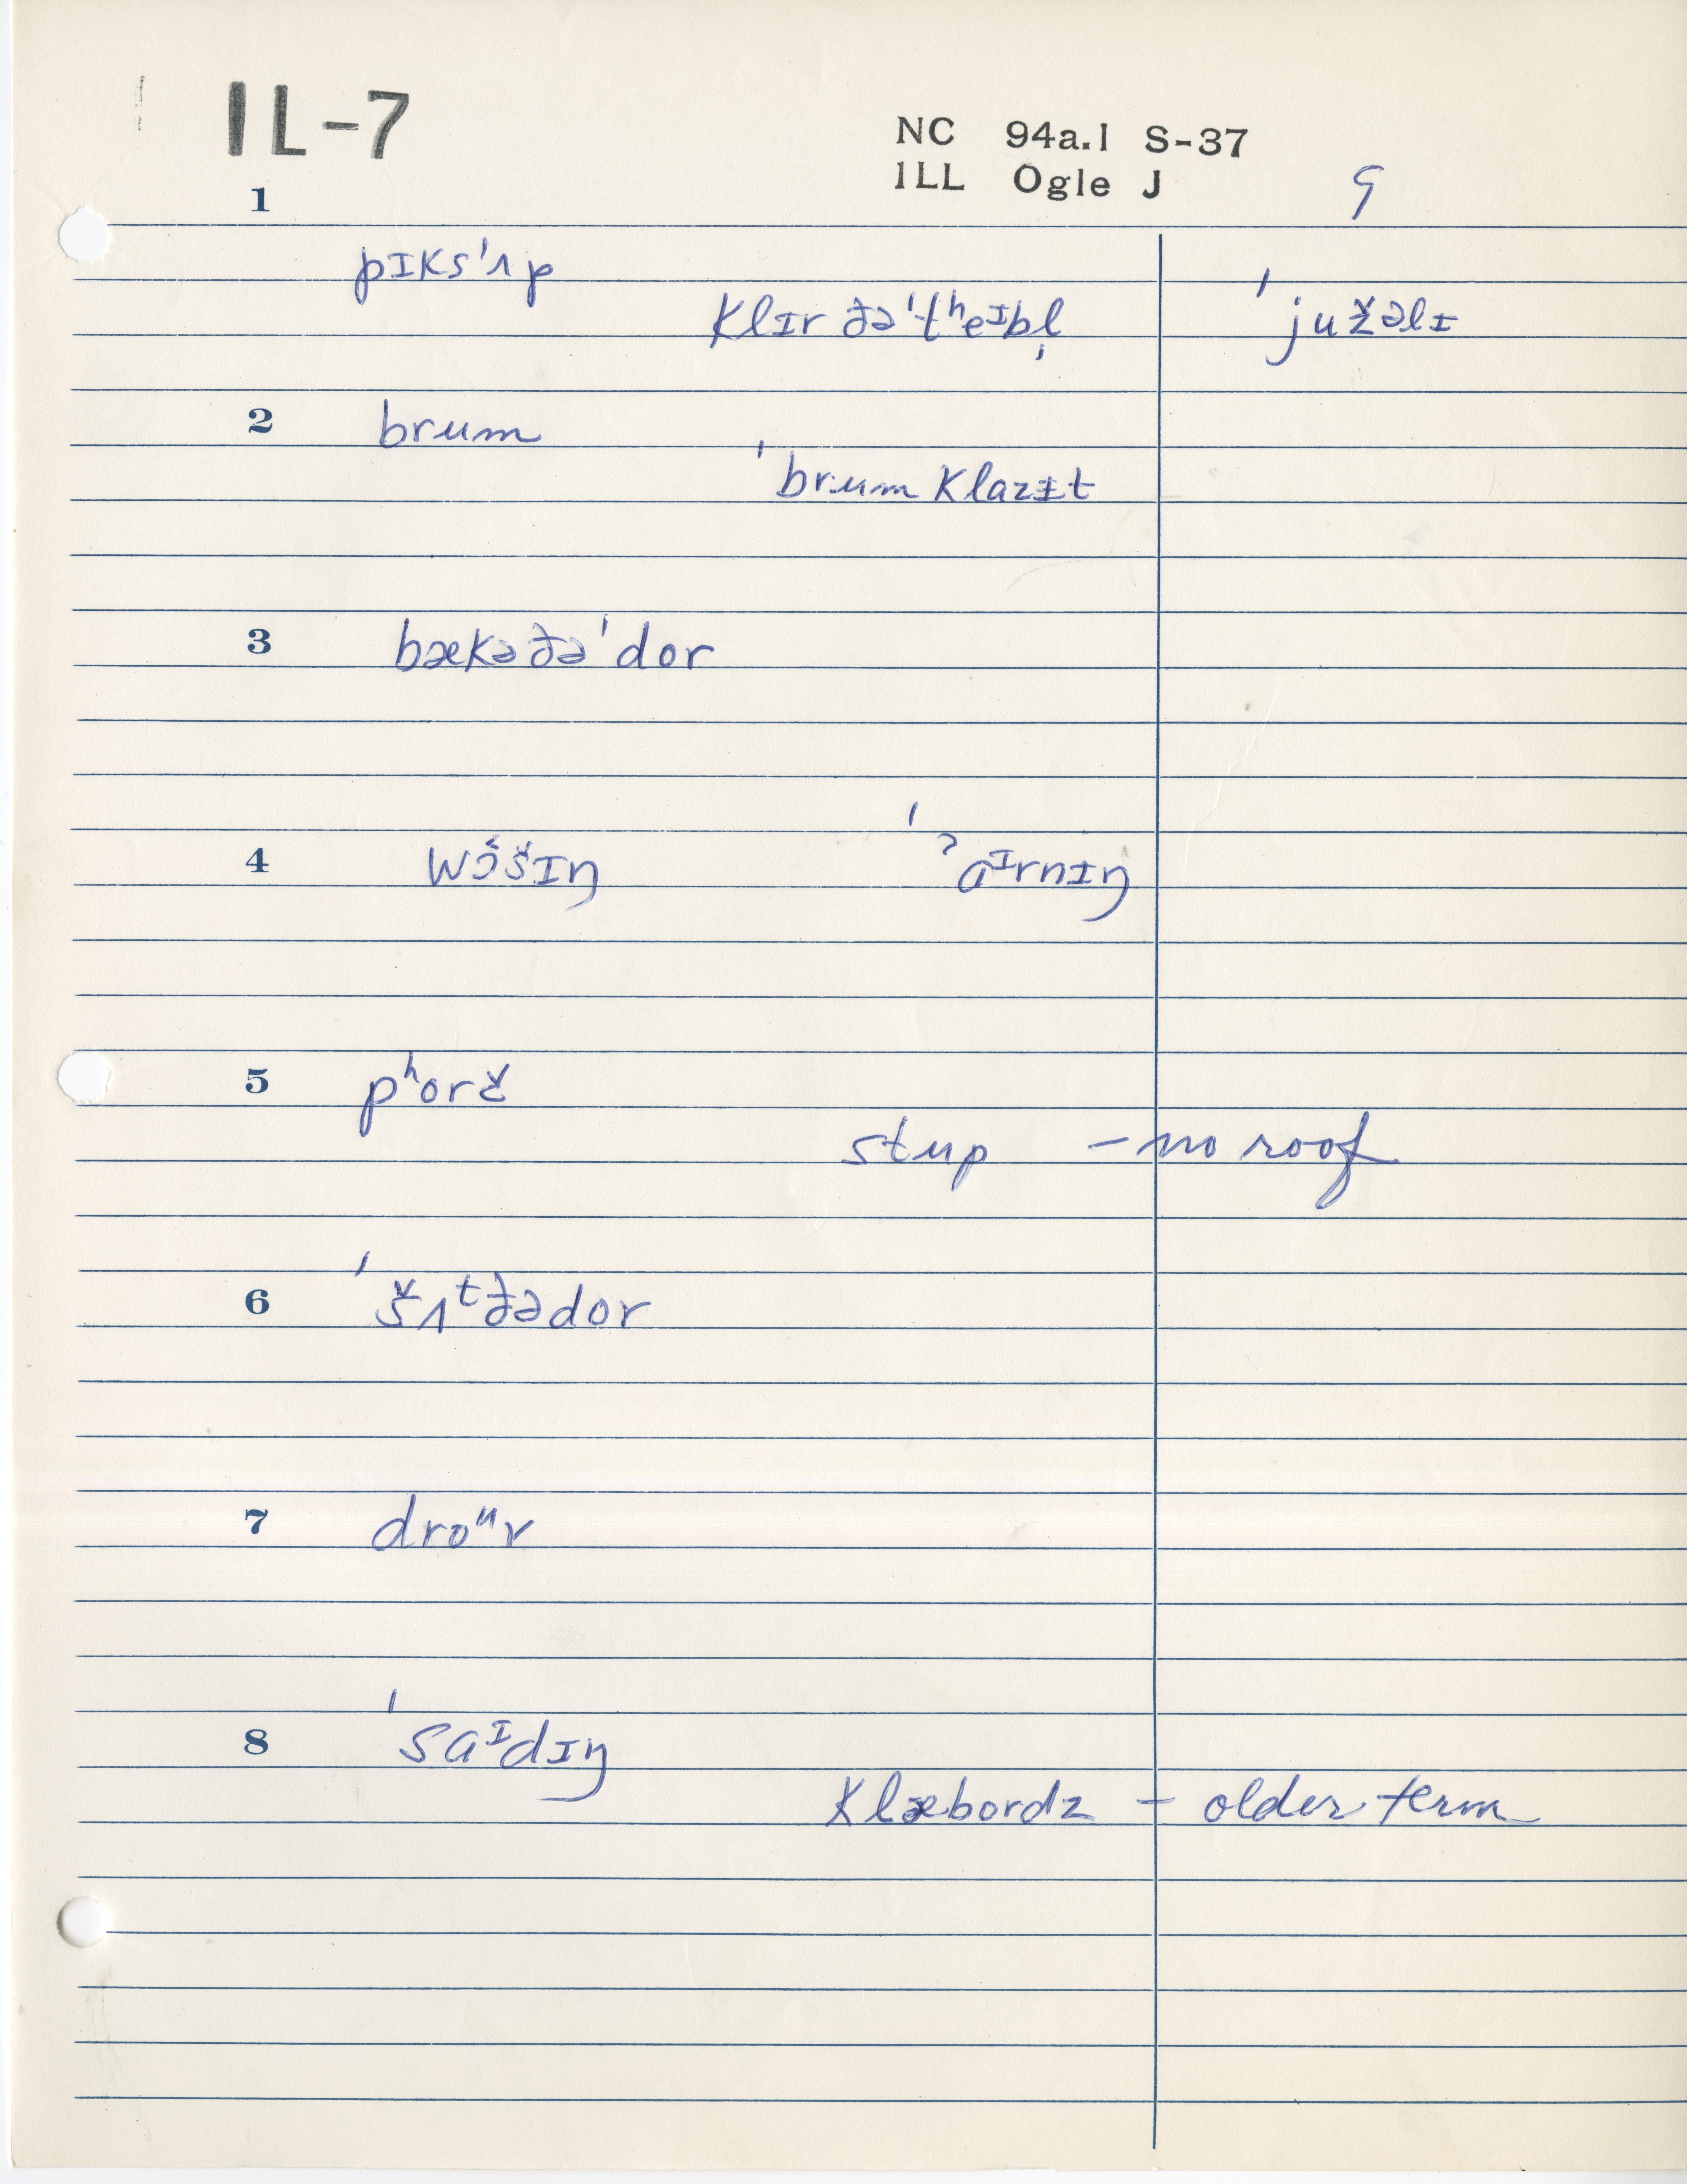 IL-7
NC 94a.1 S-37
ILL Ogle J
9
1
pɪks'ʌp
klɪr ðə'tʰeᴵbl̩
'južəlɪ
2 brum
'brum klazɪt
3 bækəðə'dor
4 wɔ̂šɪŋ 'ˀaᴵrnɪŋ
5 pʰorč
stup – no roof
6 'šʌᵗðədor
7 droᵘr
8 'saᴵdɪŋ
klæbordz – older term